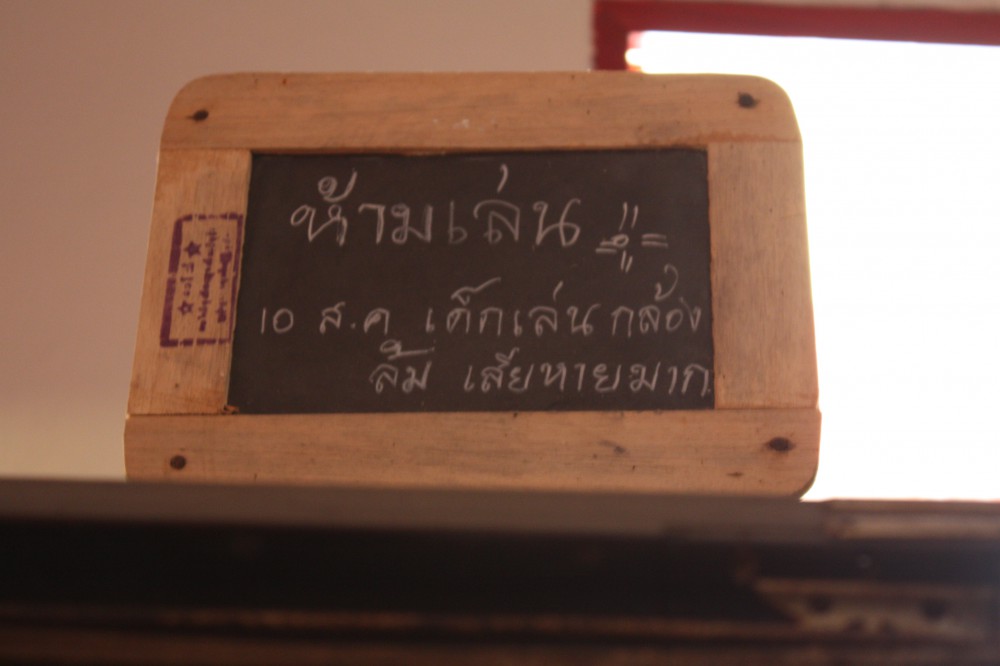 ห้ามเล่น
10 ส.ค เด็กเล่นกล้อง
ล้ม เสียหายมาก